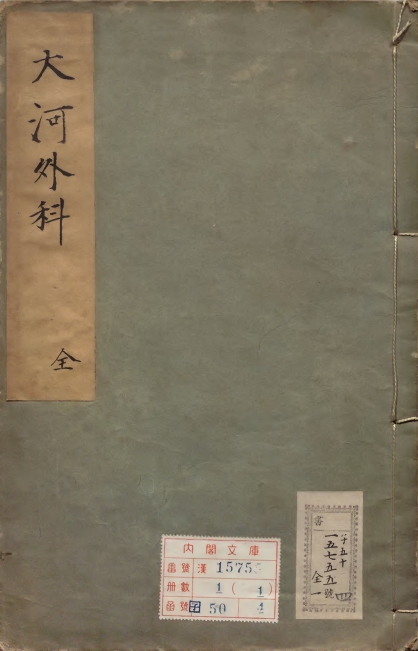 大河外科
全
内閣文庫
番號 漢 15755
册數 1 ( 1 )
函號 子 50 4
書
子五十
一五七五五號
全一
四